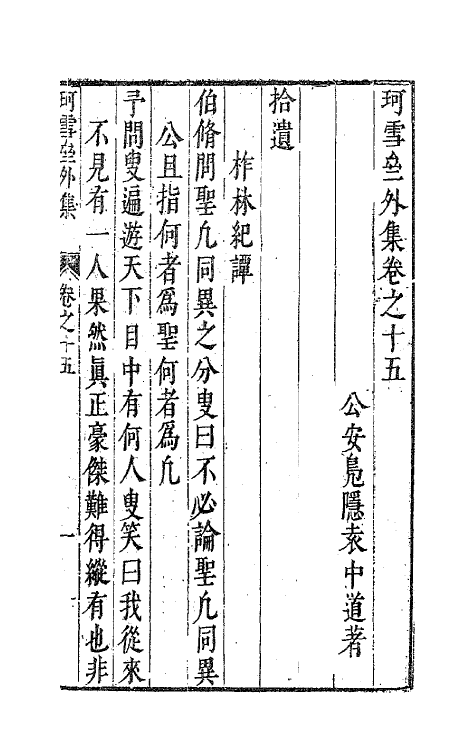 珂雪壘外集卷之十五
公安鳧隱袁中道著
拾遺
柞林紀譚
伯脩問聖凡同異之分叟曰不必論聖凡同異
公且指何者爲聖何者爲凡
予問叟遍遊天下目中有何人叟笑曰我從來
不見有一人果然眞正豪傑難得縱有也非
珂雪壘外集
卷之十五
一